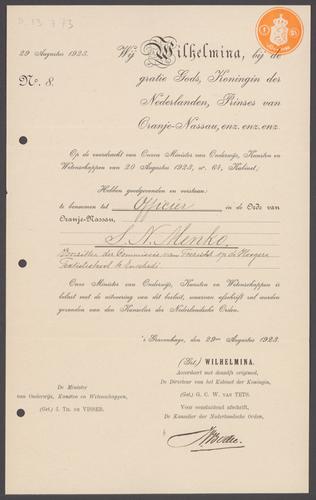 D. 13 7 73
29 Augustus 1923.
Nº. 8.
Wij Wilhelmina, bij de
gratie Gods, Koningin der
Nederlanden, Prinses van
Oranje-Nassau, enz. enz. enz.
Op de voordracht van Onzen Minister van Onderwijs, Kunsten en
Wetenschappen van 20 Augustus 1923, nº. 64, Kabinet;
Hebben goedgevonden en verstaan:
te benoemen tot Officier in de Orde van
Oranje-Nassau,
S. N. Menko,
Voorzitter der Commissie van Toezicht op de Hoogere
Textielschool te Enschedé
Onze Minister van Onderwijs, Kunsten en Wetenschappen is
belast met de uitvoering van dit besluit, waarvan afschrift zal worden
gezonden aan den Kanselier der Nederlandsche Orden.
's Gravenhage, den 29sten Augustus 1923.
(Get.) WILHELMINA.
Accordeert met deszelfs origineel,
De Directeur van het Kabinet der Koningin,
(Get.) G. C. W. VAN TETS.
Voor eensluidend afschrift,
De Kanselier der Nederlandsche Orden,
De Minister
van Onderwijs, Kunsten en Wetenschappen,
(Get.) J. TH. DE VISSER.